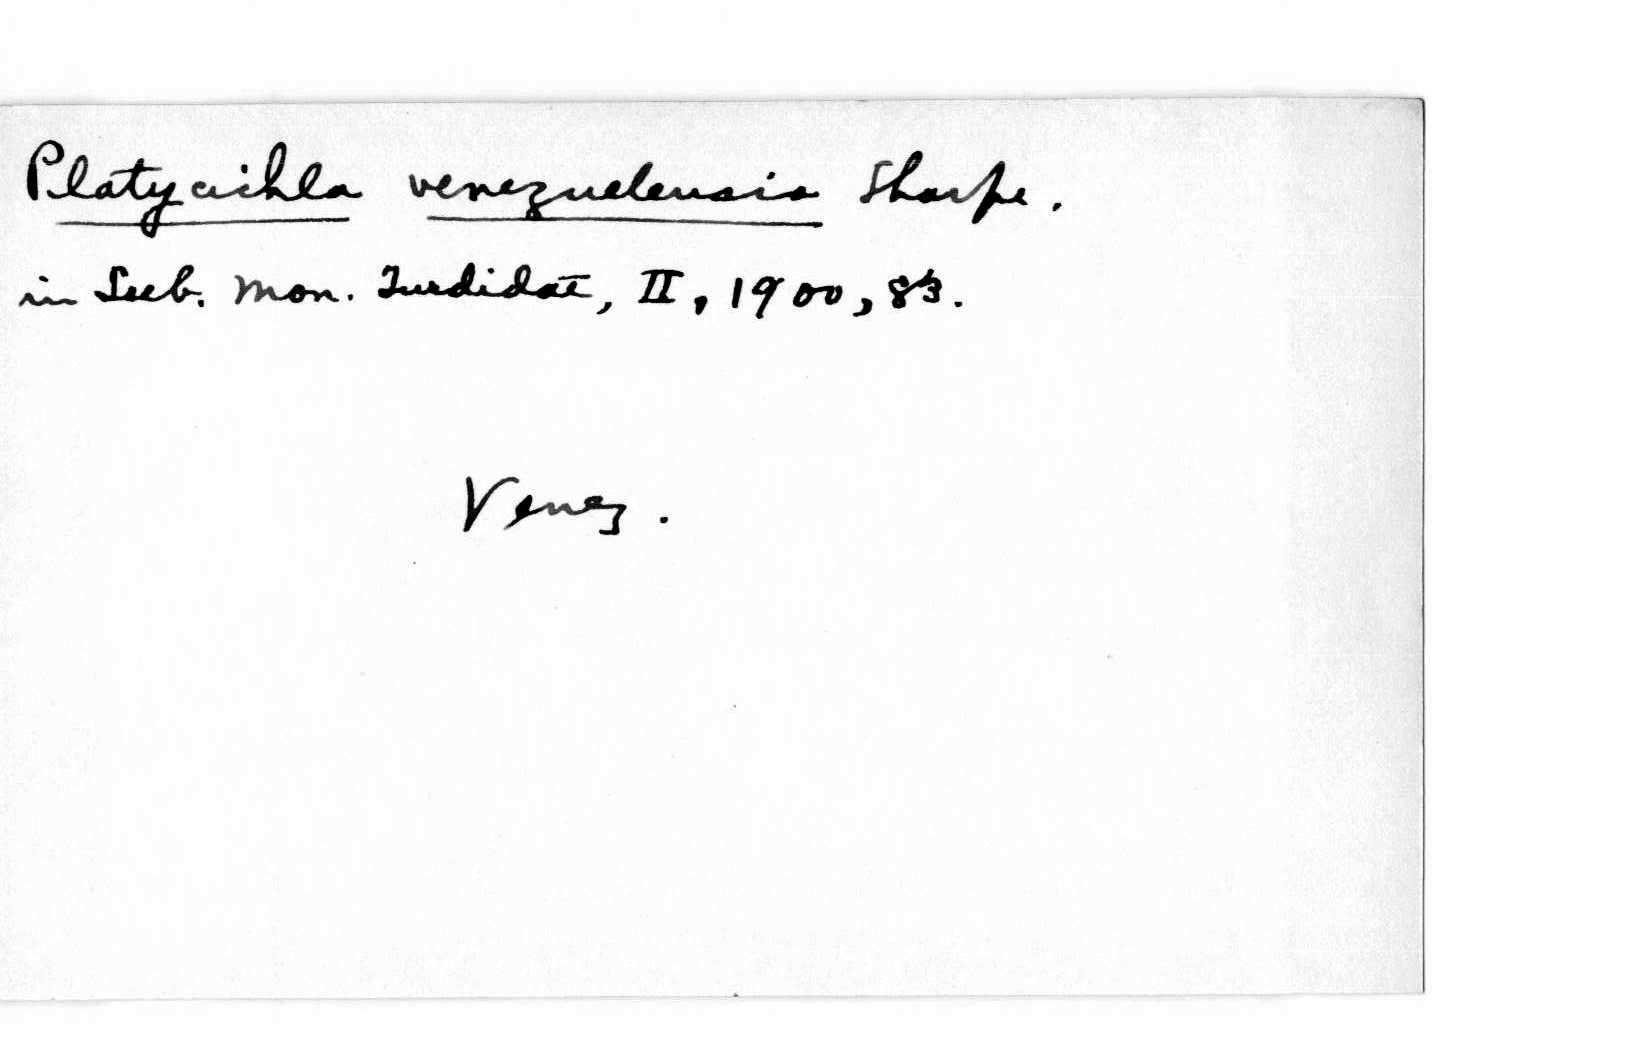 Platycichla venezuelensis Sharpe.
in Seeb. Mon. Turdidae, II, 1900, 83.
Venez.